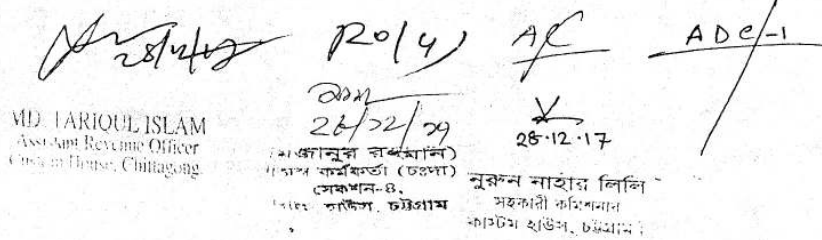 28/12/17
RO(4)
AC
ADC-1
MD. TARIQUL ISLAM
Assistant Revenue Officer
Custom House, Chittagong.
28/12/17
(মিজানুর রহমান)
রাজস্ব কর্মকর্তা (চঃদাঃ)
সেকশন-৪,
হাউস, চট্টগ্রাম
28.12.17
নুরুন নাহার লিলি
সহকারী কমিশনার
কাস্টম হাউস, চট্টগ্রাম।